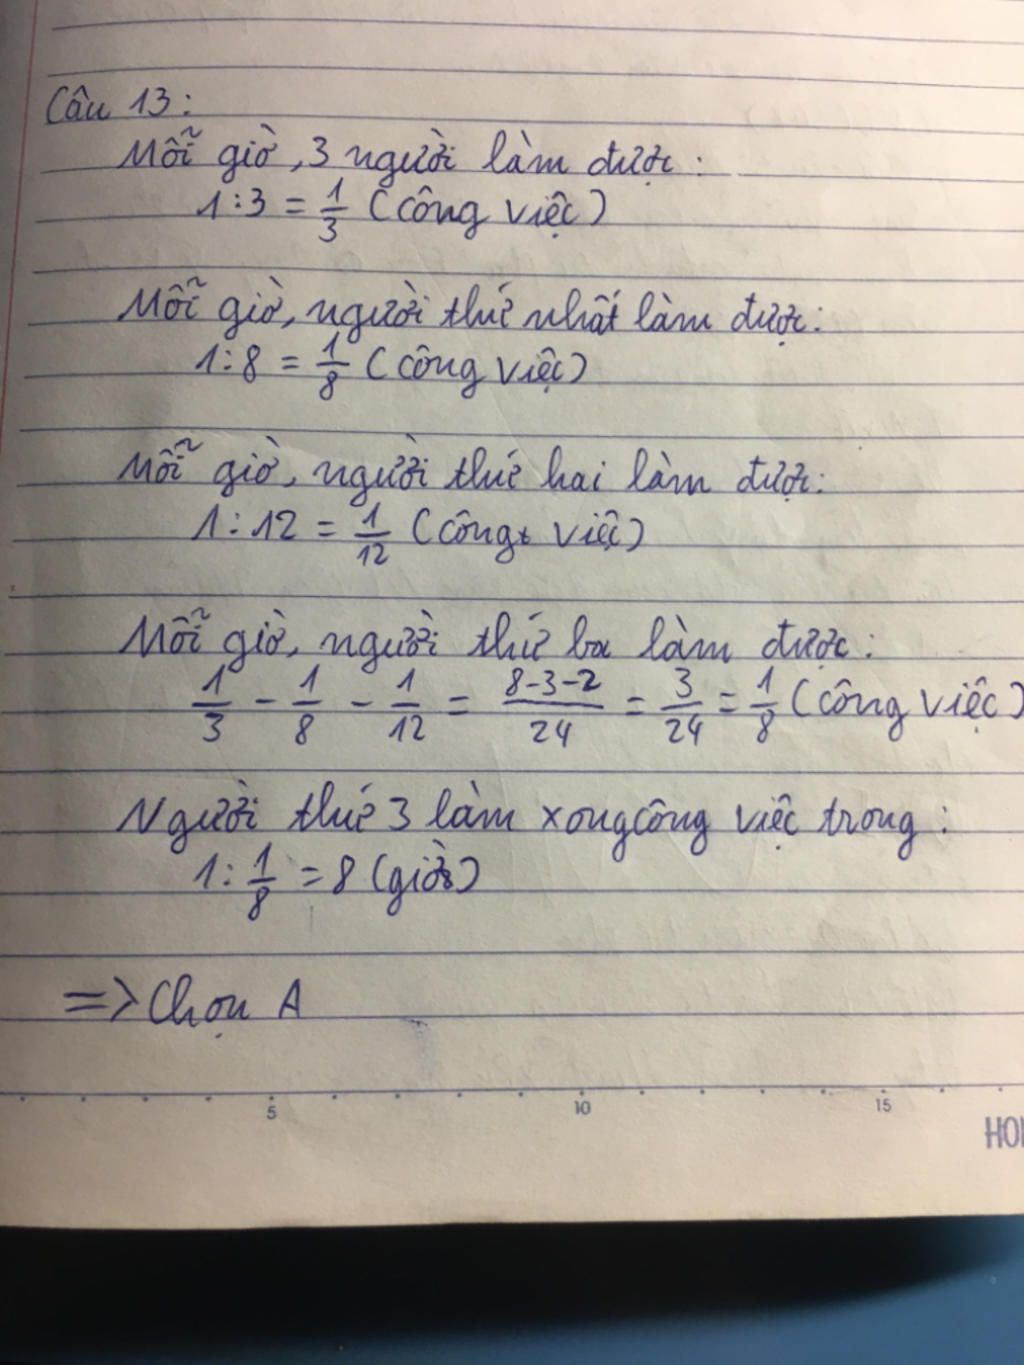 Câu 13:
Mỗi giờ, 3 người làm được:
1:3 = 1/3 (công việc)
Mỗi giờ, người thứ nhất làm được:
1:8 = 1/8 (công việc)
Mỗi giờ, người thứ hai làm được:
1:12 = 1/12 (công việc)
Mỗi giờ, người thứ ba làm được:
1/3 - 1/8 - 1/12 = 8-3-2/24 = 3/24 = 1/8 (công việc)
Người thứ 3 làm xong công việc trong:
1: 1/8 = 8 (giờ)
=> Chọn A
5 10 15